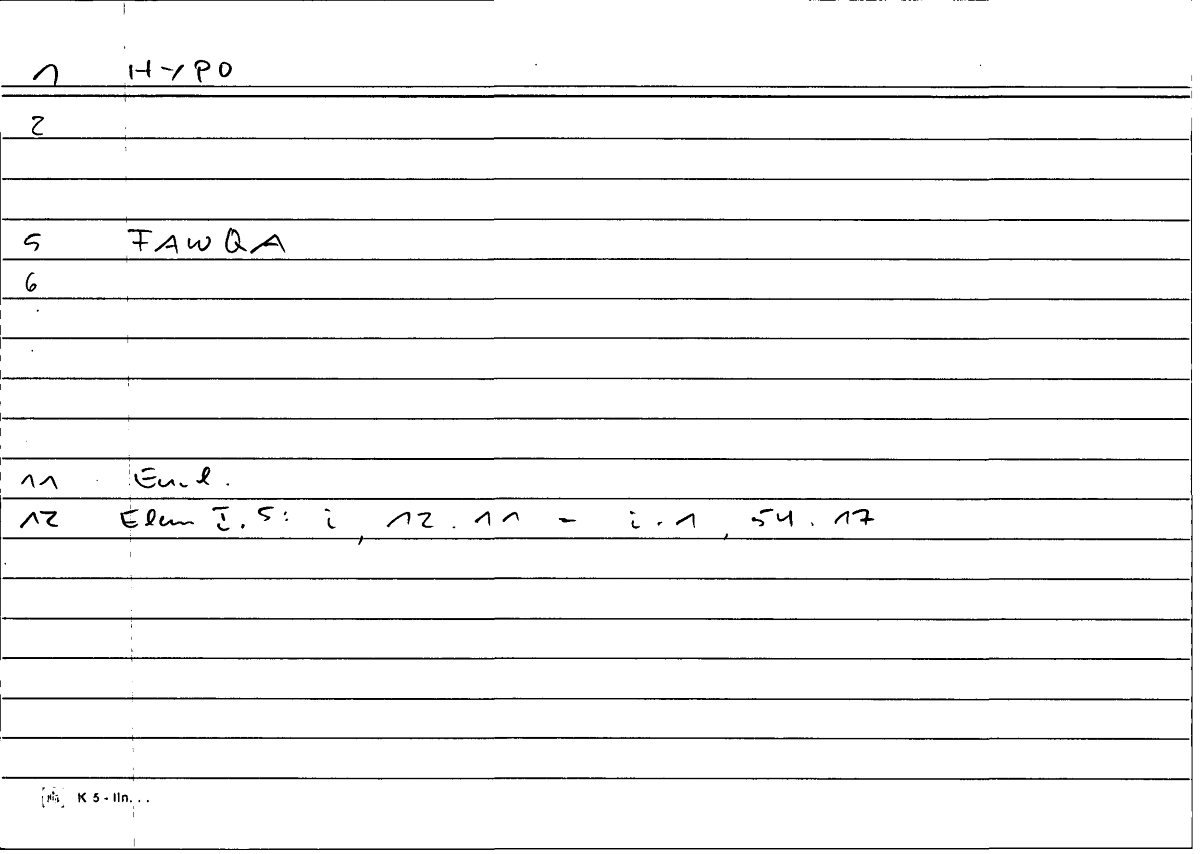 1 HYPO
2
5 FAWQA
6
11 Eucl.
12 Elem I.5: i, 12.11 - i.1, 54.17
K 5 - lin. . .